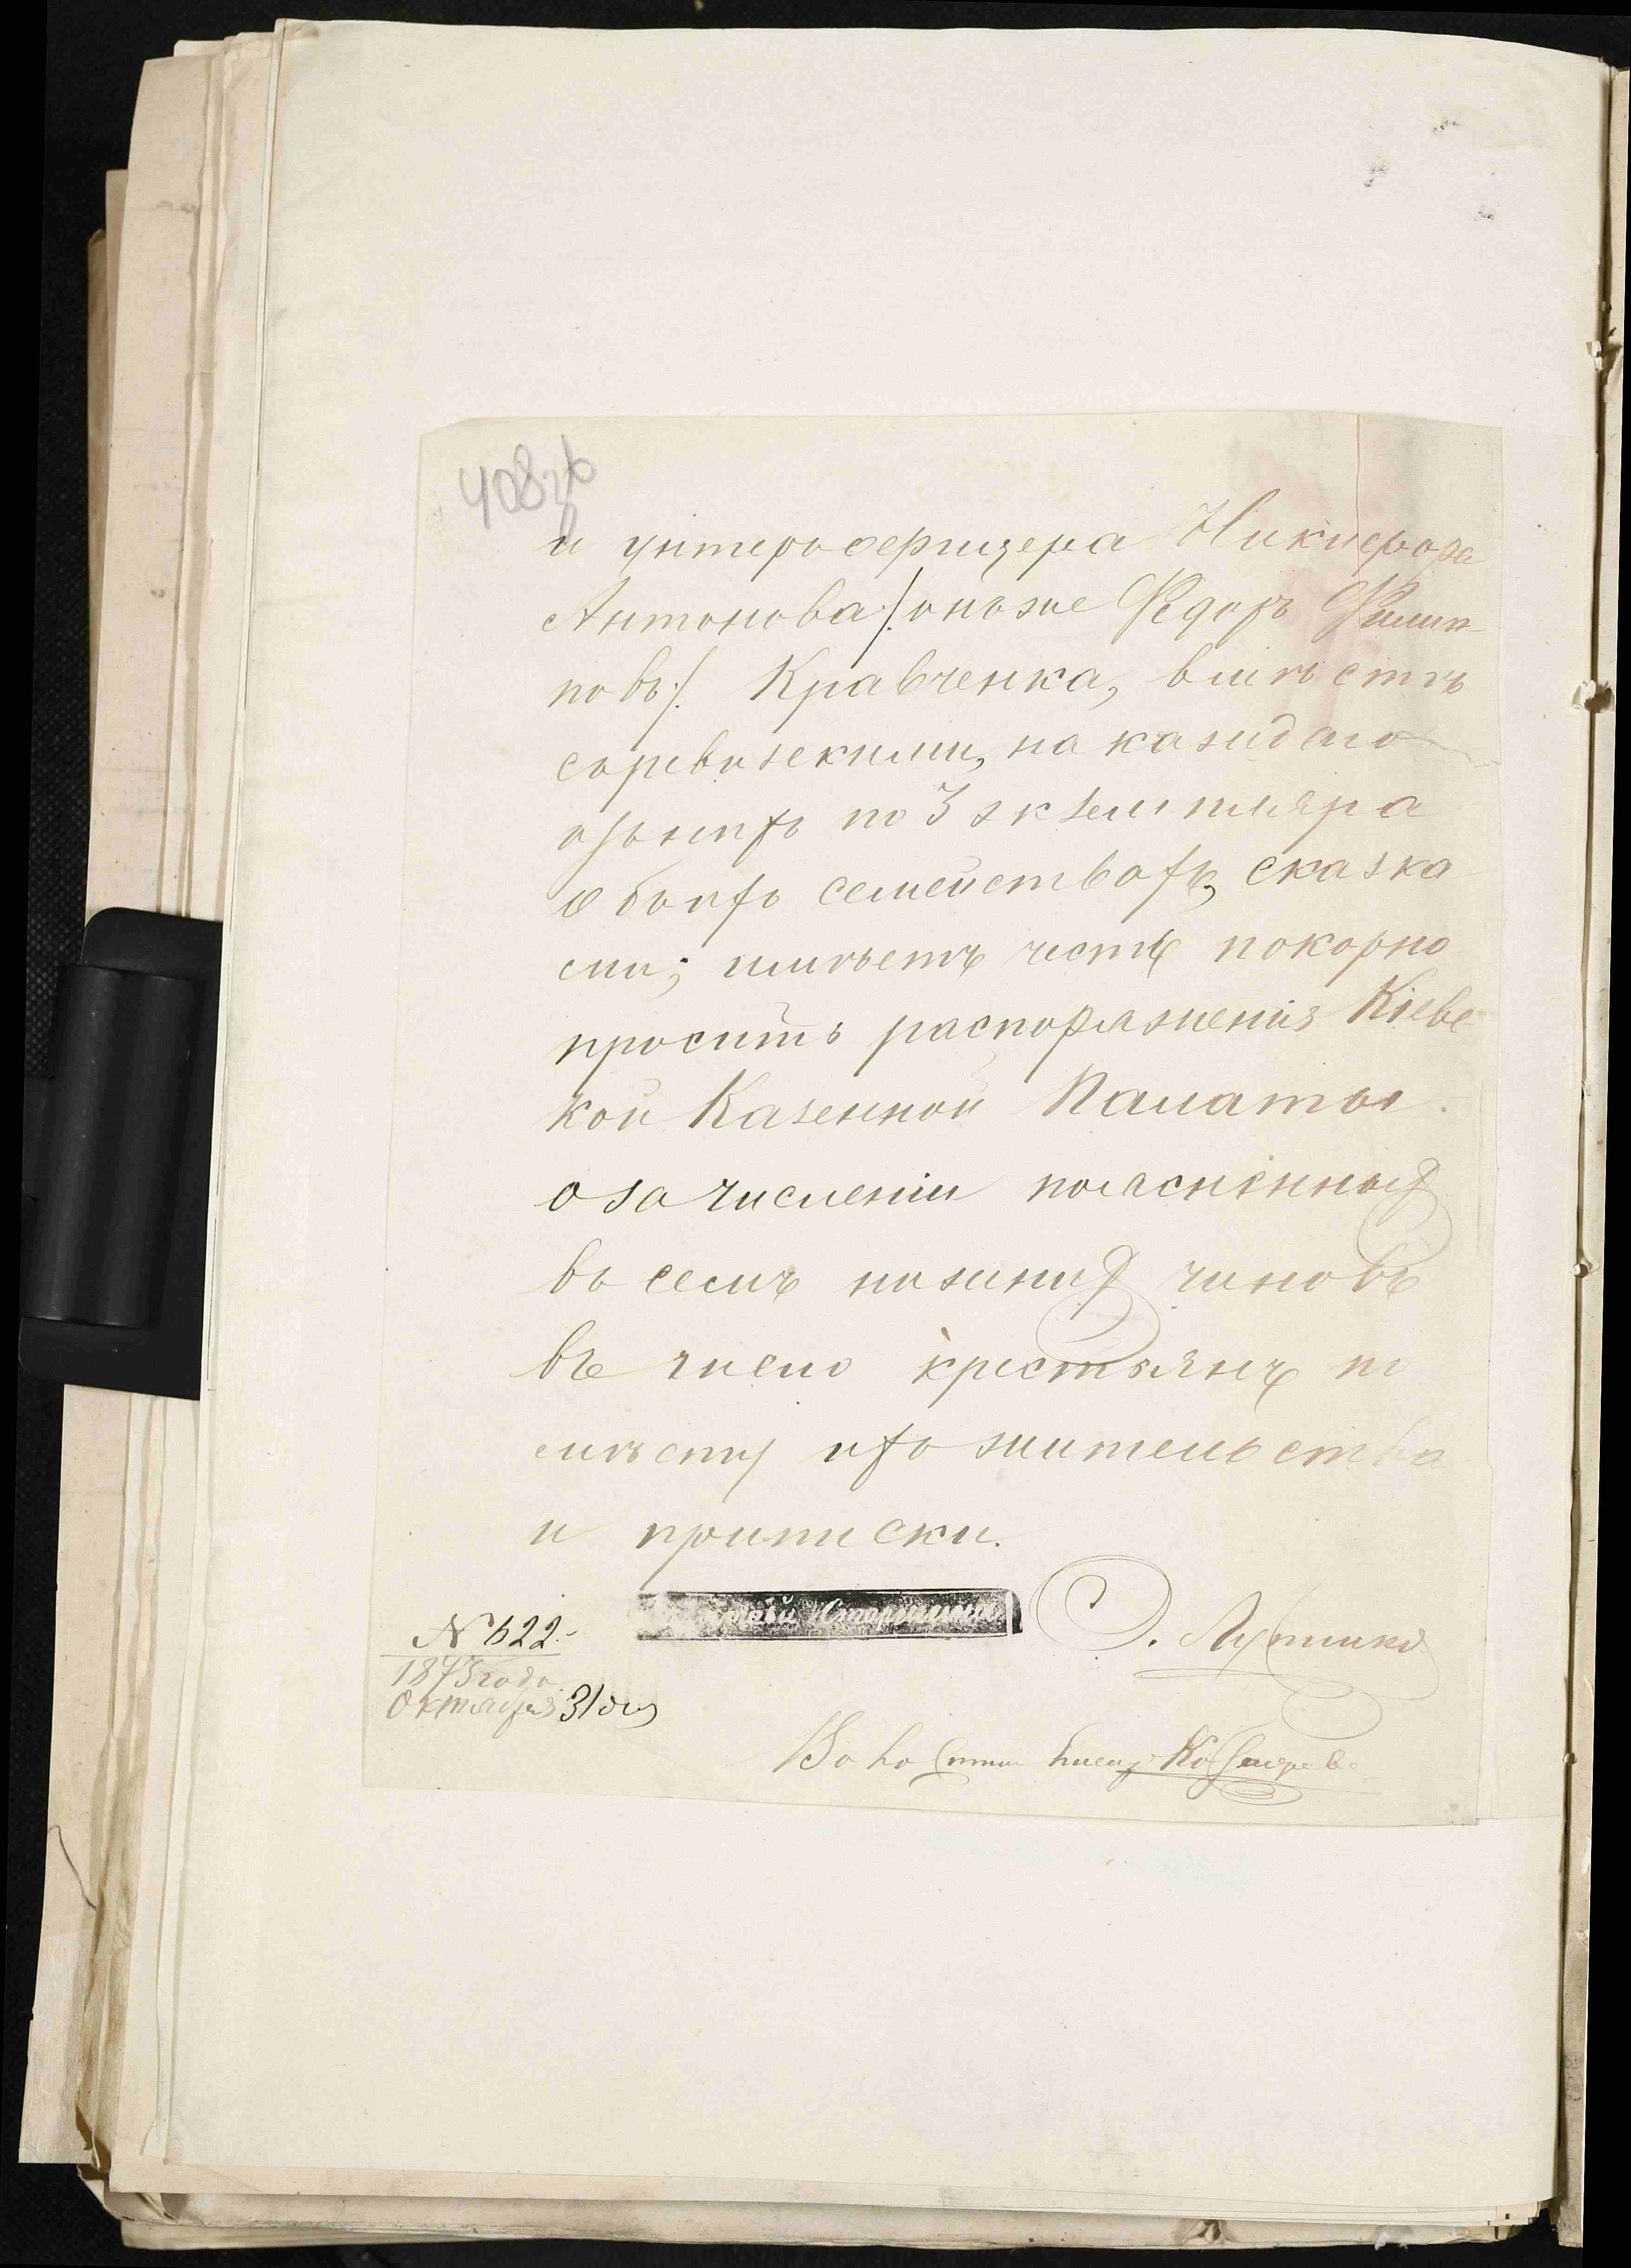 408 зв
и унтеро офицера Никифора
Антонова /: онъ же Федоръ Филип-
повъ :/ Кравченка, вмѣстѣ
соревизскими, на каждаго
изъ нихъ по 3 экземпляра
обоихъ семействахъ, сказка
ми; имѣетъ честь покорно
просить распоряженія Кіевс
кой Казенной Палаты.
о зачисленіи поясненныхъ
въ семъ нижнихъ чиновъ
въ число крестьянъ по
мѣсту ихъ жительства
и приписки.
Старшина
№ 622.
1875 года
Октября 31 дня
Волостной Писарь